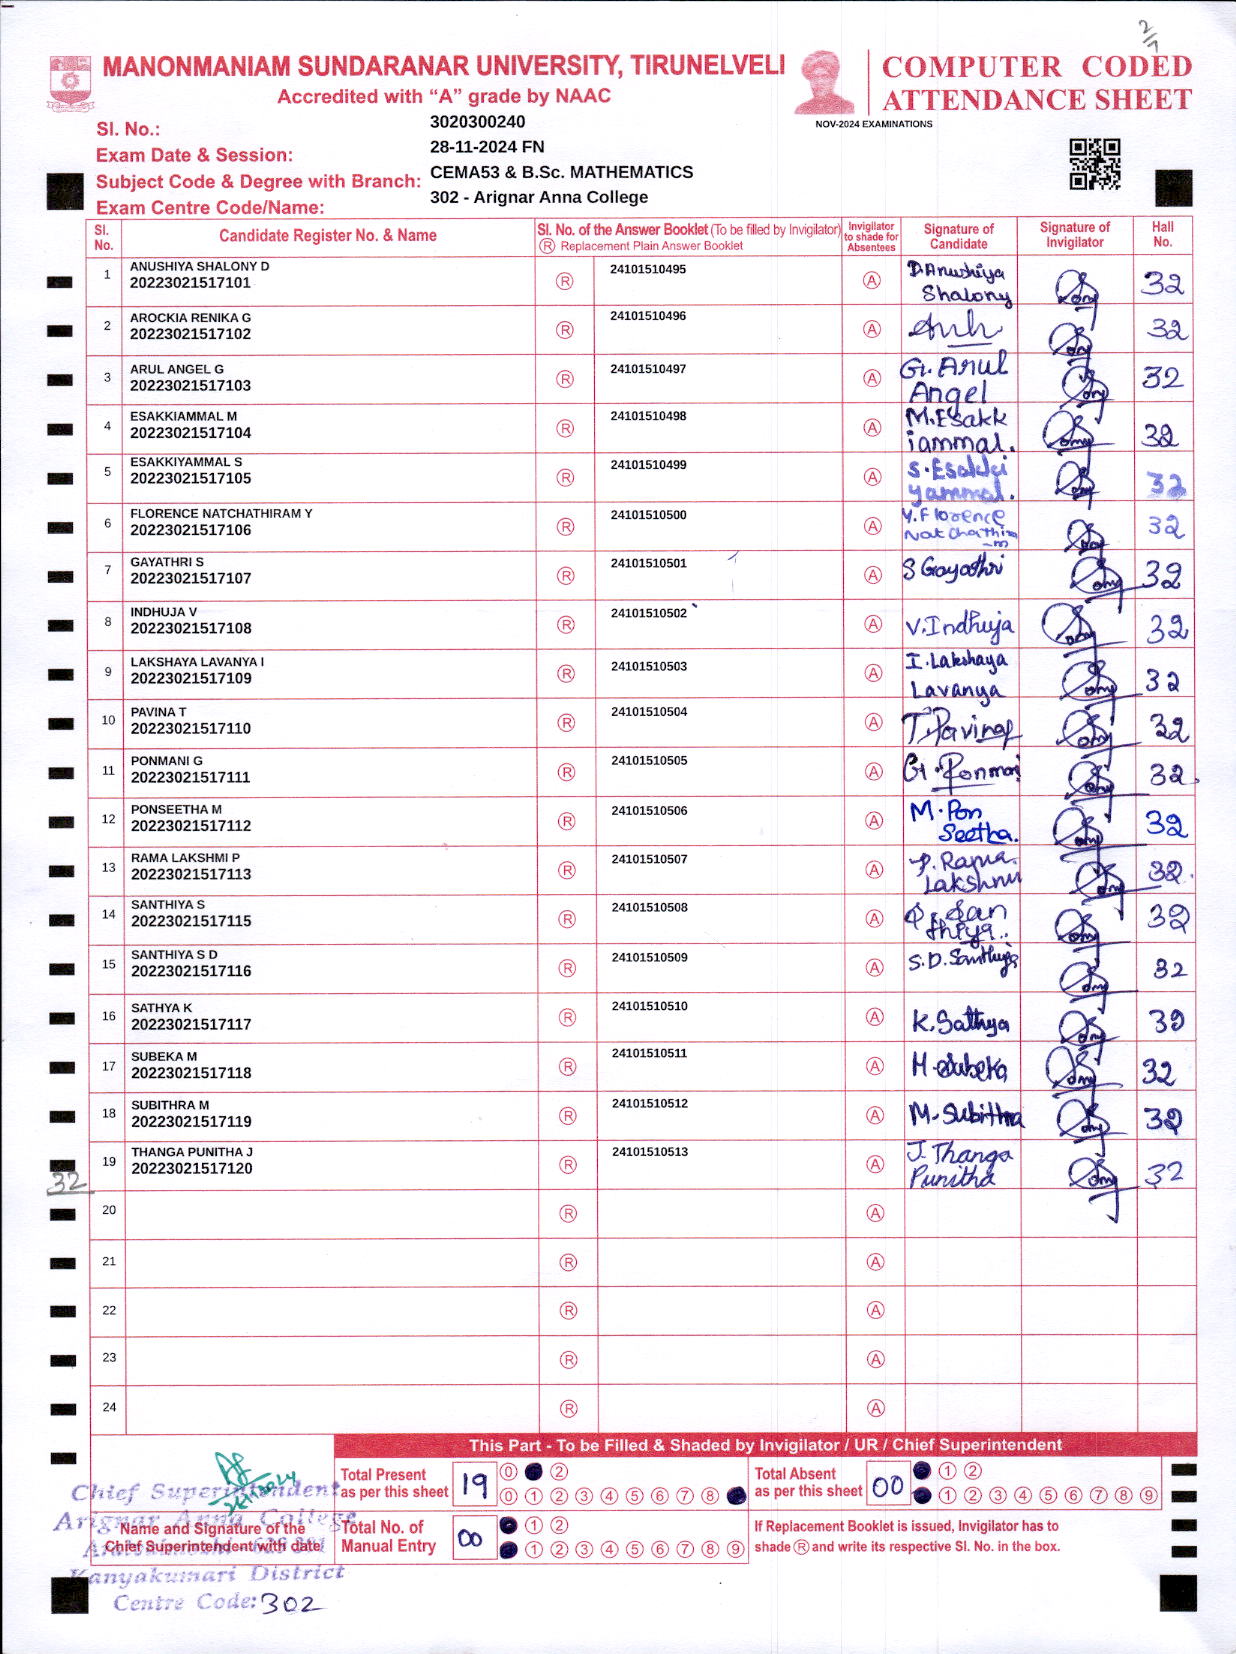 2/7
MANONMANIAM SUNDARANAR UNIVERSITY, TIRUNELVELI
Accredited with “A” grade by NAAC
COMPUTER CODED
ATTENDANCE SHEET
NOV-2024 EXAMINATIONS
Sl. No.: 3020300240
Exam Date & Session: 28-11-2024 FN
Subject Code & Degree with Branch: CEMA53 & B.Sc. MATHEMATICS
Exam Centre Code/Name: 302 - Arignar Anna College
Sl. No. Candidate Register No. & Name Sl. No. of the Answer Booklet (To be filled by Invigilator) Ⓡ Replacement Plain Answer Booklet Invigilator to shade for Absentees Signature of Candidate Signature of Invigilator Hall No.
1 ANUSHIYA SHALONY D 20223021517101 Ⓡ 24101510495 Ⓐ D.Anushiya Shalony 32
2 AROCKIA RENIKA G 20223021517102 Ⓡ 24101510496 Ⓐ 32
3 ARUL ANGEL G 20223021517103 Ⓡ 24101510497 Ⓐ G. Arul Angel 32
4 ESAKKIAMMAL M 20223021517104 Ⓡ 24101510498 Ⓐ M.Esakk iammal. 32
5 ESAKKIYAMMAL S 20223021517105 Ⓡ 24101510499 Ⓐ S.Esakki yammal. 32
6 FLORENCE NATCHATHIRAM Y 20223021517106 Ⓡ 24101510500 Ⓐ Y.Florence Natchathira -m 32
7 GAYATHRI S 20223021517107 Ⓡ 24101510501 Ⓐ S Gayathri 32
8 INDHUJA V 20223021517108 Ⓡ 24101510502 Ⓐ V.Indhuja 32
9 LAKSHAYA LAVANYA I 20223021517109 Ⓡ 24101510503 Ⓐ I.Lakshaya Lavanya 32
10 PAVINA T 20223021517110 Ⓡ 24101510504 Ⓐ T.Pavina 32
11 PONMANI G 20223021517111 Ⓡ 24101510505 Ⓐ G.Ponmani 32
12 PONSEETHA M 20223021517112 Ⓡ 24101510506 Ⓐ M.Pon Seetha. 32
13 RAMA LAKSHMI P 20223021517113 Ⓡ 24101510507 Ⓐ P.Rama Lakshmi 32
14 SANTHIYA S 20223021517115 Ⓡ 24101510508 Ⓐ S.San thiya.. 32
15 SANTHIYA S D 20223021517116 Ⓡ 24101510509 Ⓐ S.D.Santhiya 32
16 SATHYA K 20223021517117 Ⓡ 24101510510 Ⓐ K.Sathya 32
17 SUBEKA M 20223021517118 Ⓡ 24101510511 Ⓐ M.Subeka 32
18 SUBITHRA M 20223021517119 Ⓡ 24101510512 Ⓐ M.Subithra 32
19 THANGA PUNITHA J 20223021517120 Ⓡ 24101510513 Ⓐ J.Thanga Punitha 32
32
20 Ⓡ Ⓐ
21 Ⓡ Ⓐ
22 Ⓡ Ⓐ
23 Ⓡ Ⓐ
24 Ⓡ Ⓐ
This Part - To be Filled & Shaded by Invigilator / UR / Chief Superintendent
Total Present as per this sheet 19 ⓪ ②
⓪ ① ② ③ ④ ⑤ ⑥ ⑦ ⑧
Total Absent as per this sheet 00 ① ②
① ② ③ ④ ⑤ ⑥ ⑦ ⑧ ⑨
Total No. of Manual Entry 00 ① ②
① ② ③ ④ ⑤ ⑥ ⑦ ⑧ ⑨
If Replacement Booklet is issued, Invigilator has to
shade Ⓡ and write its respective Sl. No. in the box.
Name and Signature of the
Chief Superintendent with date
Chief Superintendent
Arignar Anna College
Kanyakumari District
Centre Code: 302